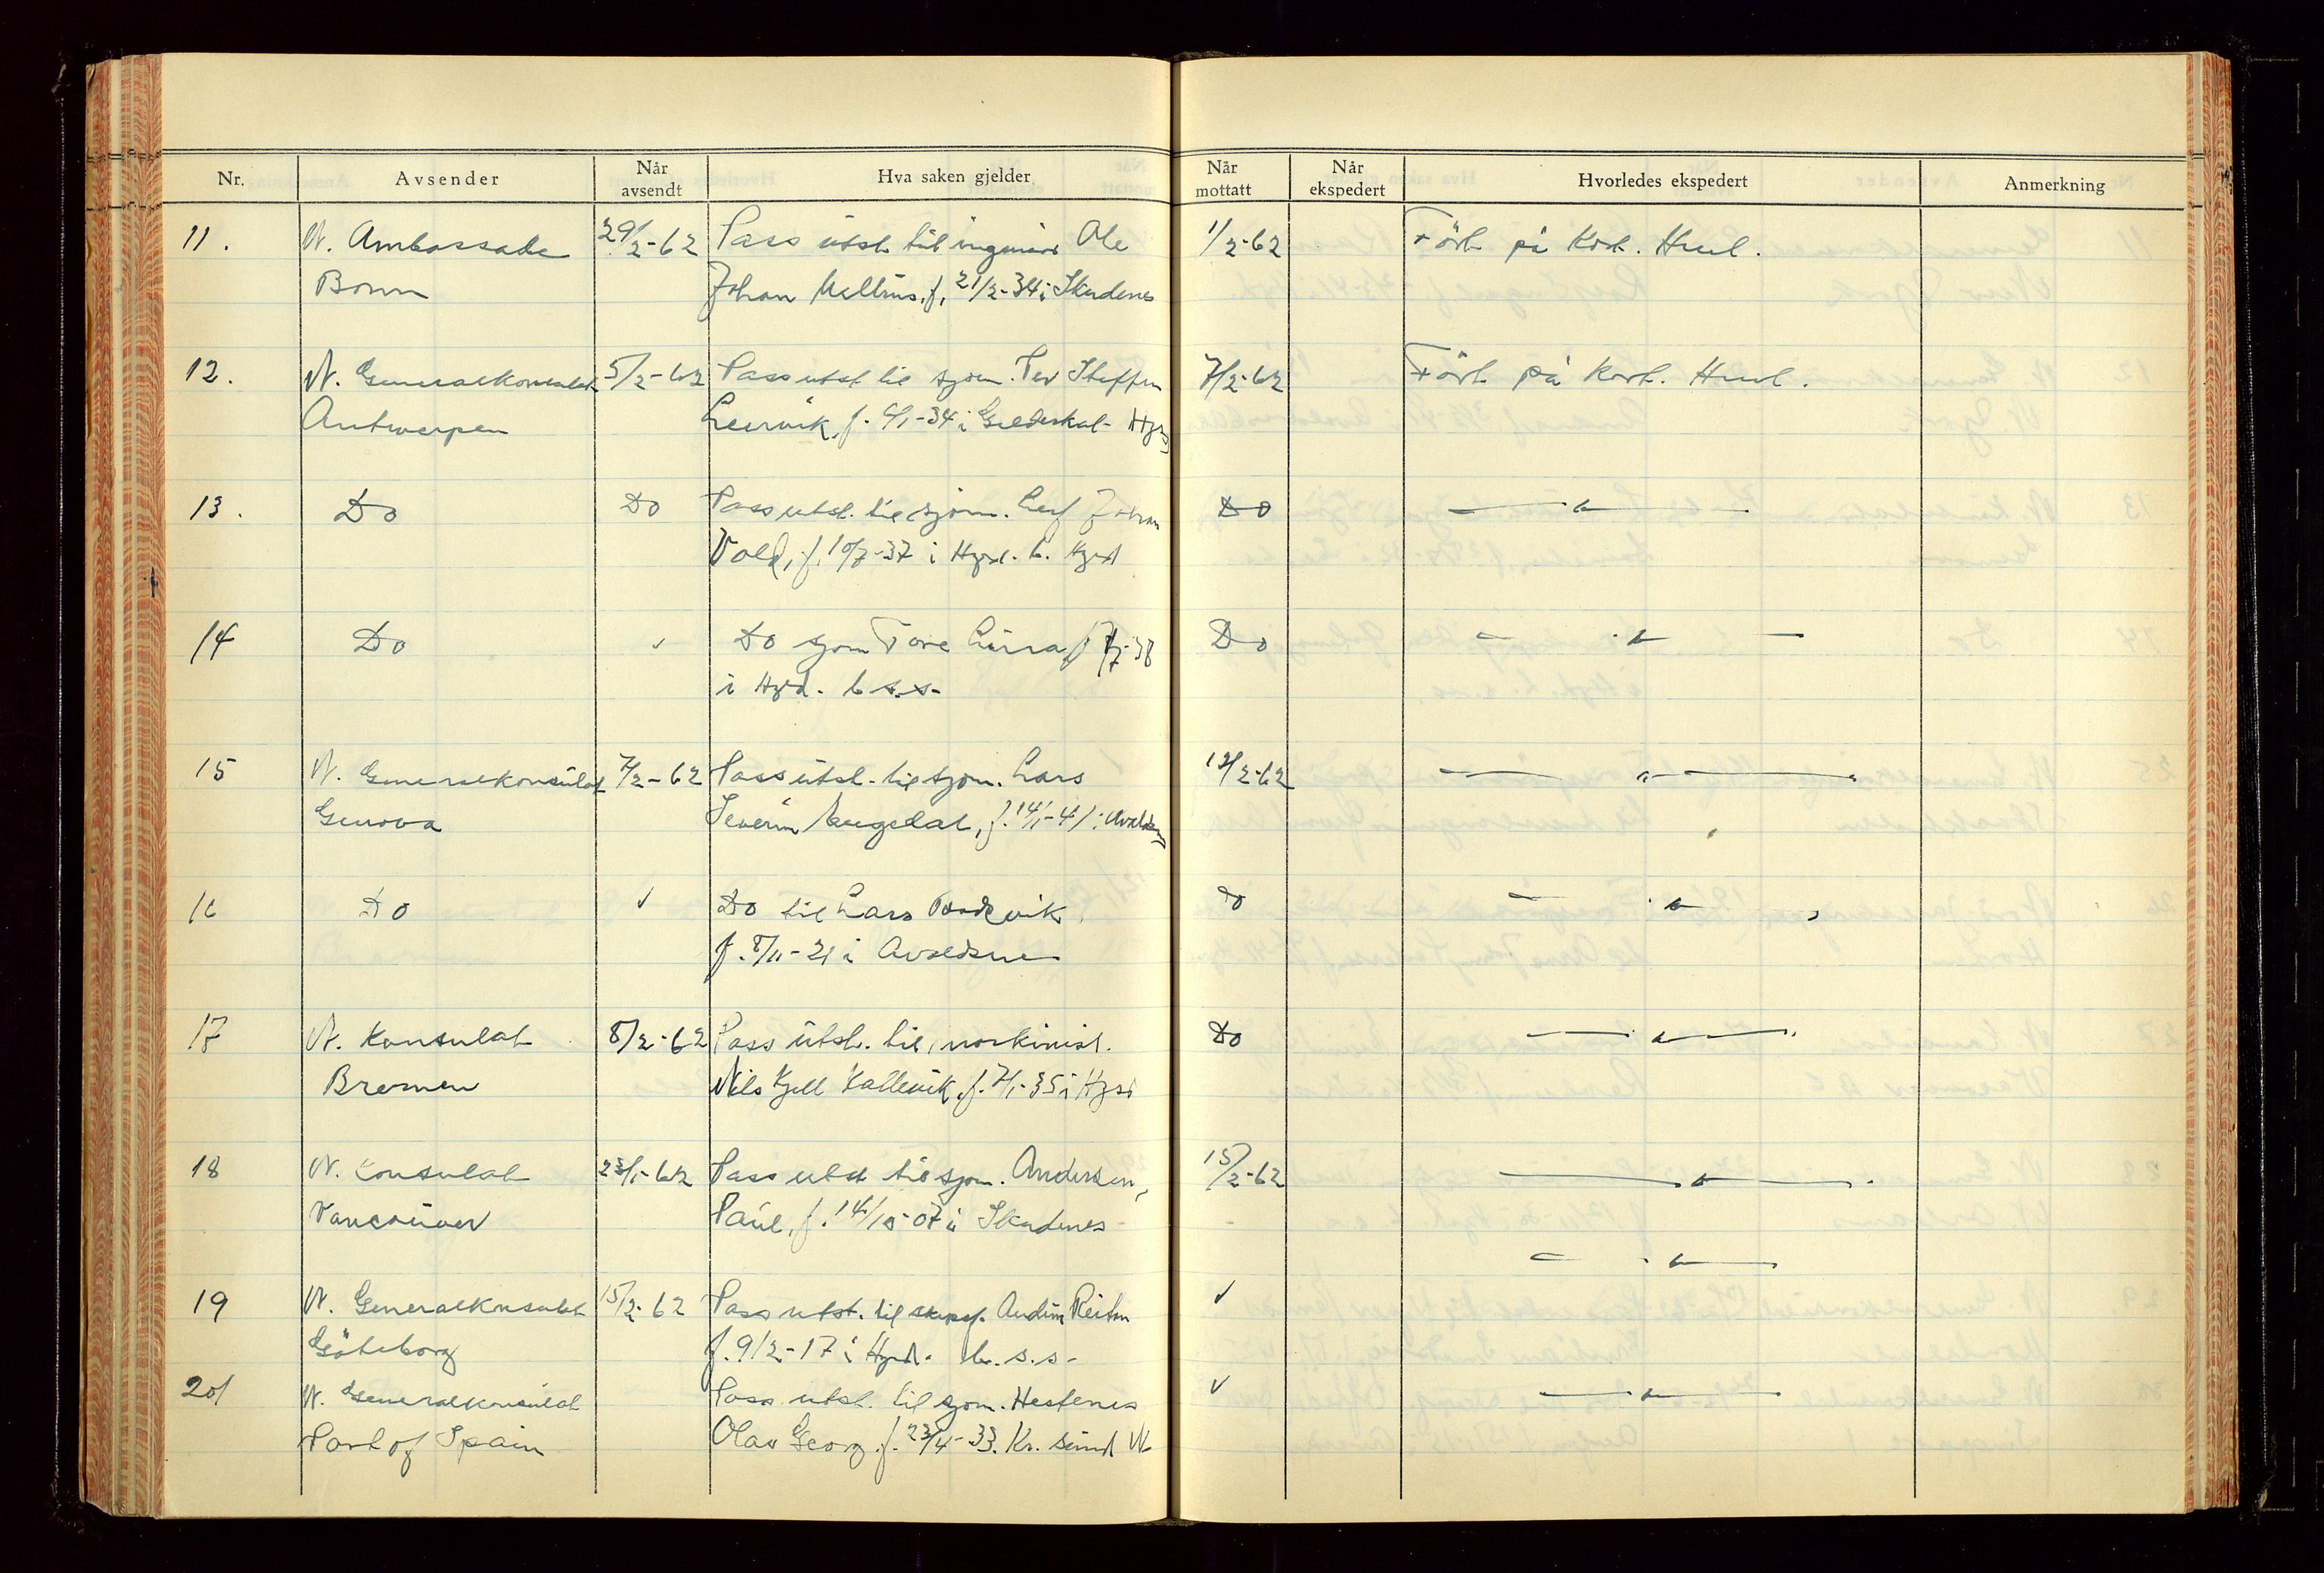 Nr. Avsender Når avsendt Hva saken gjelder Når mottatt Når ekspedert Hvorledes ekspedert Anmerkning
11. N. Ambassade 29/2-62 Pass utst. til ingeniør Ole 1/2-62 Förb på Kort. Hwl.
Bonn Johan f. 21/2-34 i Skudenes
12. N. Generalkonsulat 5/2-62 Pass utst til sjøm. Per Steffen 7/2-62 Förb på Kort. Hwl.
Antwerpen Leirvik, f. 6/1-34 i Gildeskål - Hgsd
13. Do Do Pass utst. til sjøm. Leif Johan Do — " —
Vold, f. 10/7-37 i Hgsd. b. Hgsd
14 Do ✓ Do sjøm Tore f. 7-38 Do — " —
i Hgsd. b s.s.
15 N. Generalkonsulat 7/2-62 Pass utst. til sjøm. Lars 12/2-62 — " —
Genova Severin f. 14/1-41 i Avaldsnes
16 Do ✓ Do til Lars Tordvik, Do — " —
f. 8/11-21 i Avaldsnes
17 N. Konsulat 8/2-62 Pass utst. til maskinist. Do — " —
Bremen Nils Kjell Kallevik, f. 7/1-35 i Hgsd
18 N. Konsulat 23/1-62 Pass utst til sjøm. Andersen, 15/2-62 — " —
Vancouver Paul, f. 14/10-07 i Skudenes
— " —
19 N. Generalkonsulat 15/2-62 Pass utst. til skipsf. Audun Reiten ✓
Göteborg f. 9/2-17 i Hgsd. b. s.s.
20/ N. Generalkonsulat Pass utst. til sjøm. Hestenes ✓ — " —
Port of Spain Olav Georg f. 23/4-33. Kr. sund N